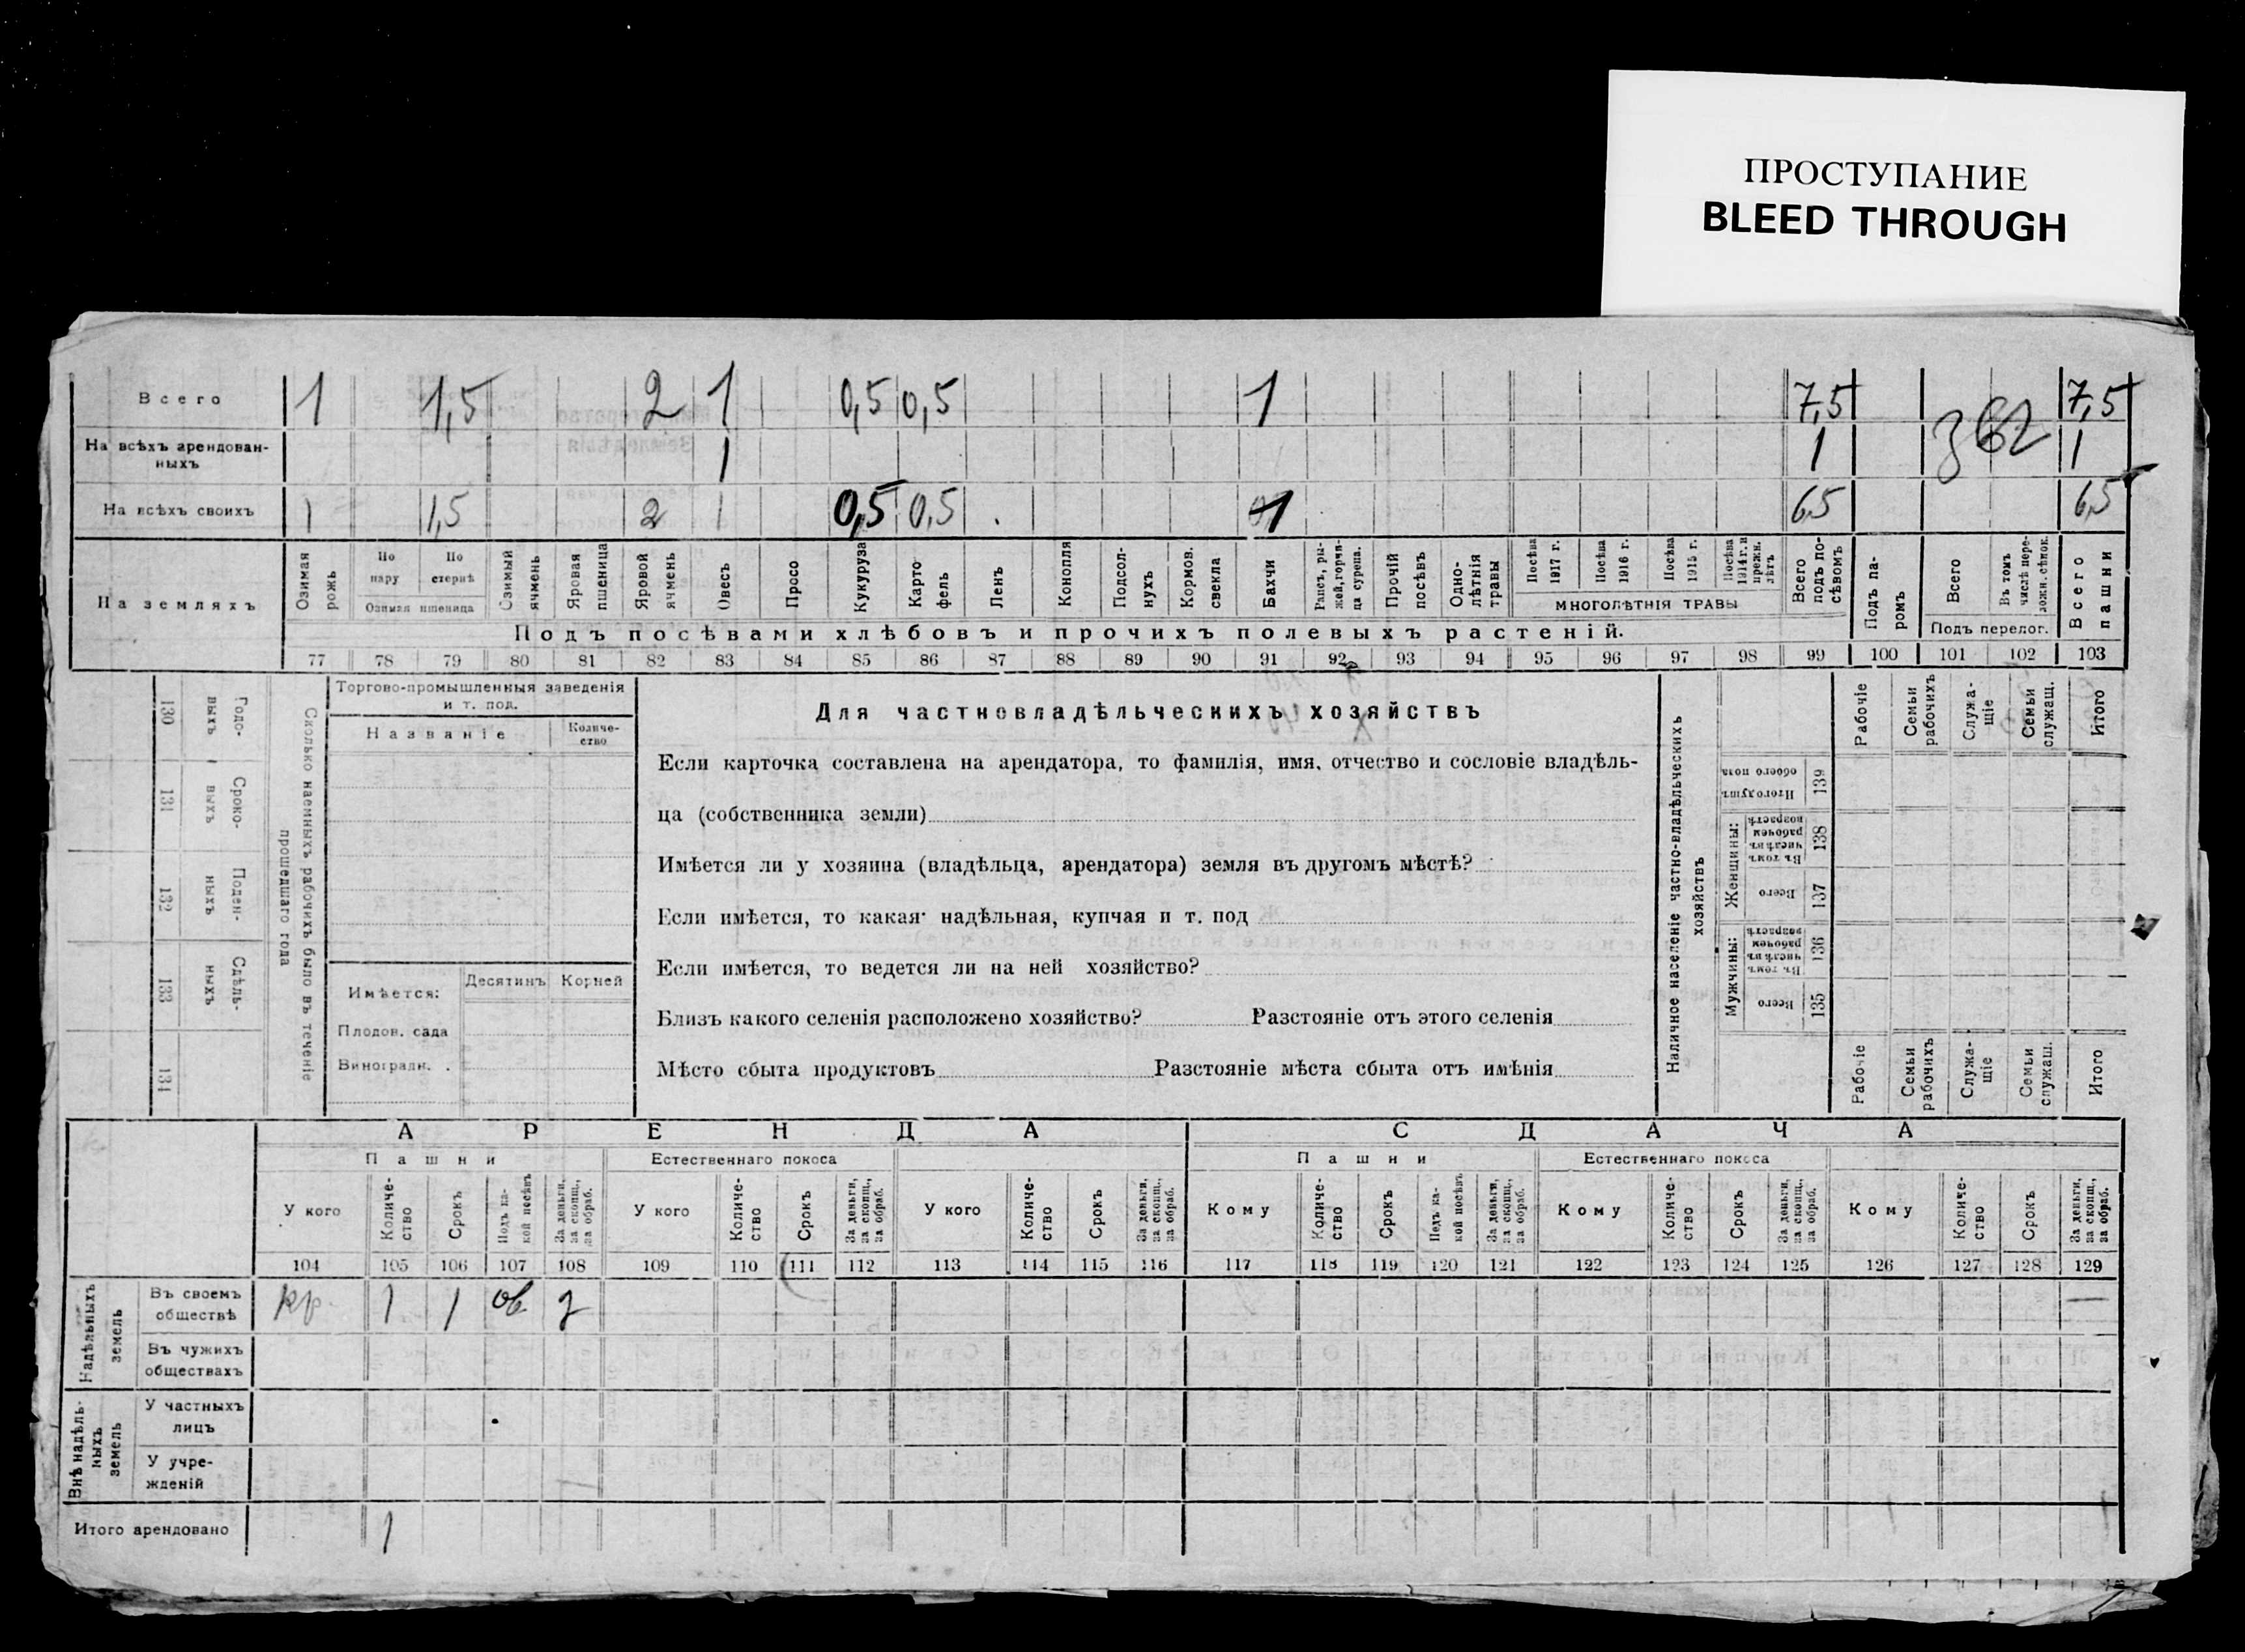 ПРОСТУПАНИЕ
BLEED THROUGH
Всего 1 1,5 2 1 0,5 0,5 1 7,5 7,5
На всѣхъ арендован-
ныхъ 1 1 362 1
На всѣхъ своихъ 1 1,5 2 1 0,5 0,5 1 6,5 6,5
На земляхъ
Озимая рожь
По пару
По стернѣ
Озимая пшеница
Озимый ячмень
Яровая пшеница
Яровой ячмень
Овесъ
Просо
Кукуруза
Карто-
фель
Ленъ
Конопля
Подсол-
нухъ
Кормов.
свекла
Бахчи
Рапсъ, ры-
жей, горчи-
ца сурепа.
Прочій
посѣвъ
Одно-
лѣтнія
травы
Посѣва 1917 г.
Посѣва 1916 г.
Посѣва 1915 г.
Посѣва 1914 г. и прежн. лѣтъ
МНОГОЛѢТНІЯ ТРАВЫ
Всего
подъ по-
сѣвомъ
Подъ па-
ромъ
Всего
Въ томъ
числѣ пере-
ложн. сѣнок.
Подъ перелог.
Всего
пашни
Подъ посѣвами хлѣбовъ и прочихъ полевыхъ растеній.
77 78 79 80 81 82 83 84 85 86 87 88 89 90 91 92 93 94 95 96 97 98 99 100 101 102 103
Годо-
выхъ
130
Сроко-
выхъ
131
Поден-
ныхъ
132
Сдѣль-
ныхъ
133
134
Сколько наемныхъ рабочихъ было въ теченіе
прошедшаго года
Торгово-промышленныя заведенія
и т. под.
Названіе
Количе-
ство
Имѣется: Десятинъ Корней
Плодов. сада
Виноградн. .
Для частновладѣльческихъ хозяйствъ
Если карточка составлена на арендатора, то фамилія, имя, отчество и сословіе владѣль-
ца (собственника земли)
Имѣется ли у хозяина (владѣльца, арендатора) земля въ другомъ мѣстѣ?
Если имѣется, то какая надѣльная, купчая и т. под
Если имѣется, то ведется ли на ней хозяйство?
Близъ какого селенія расположено хозяйство? Разстояніе отъ этого селенія
Мѣсто сбыта продуктовъ Разстояніе мѣста сбыта отъ имѣнія
Наличное населеніе частно-владѣльческихъ
хозяйствъ
Рабочіе
Семьи
рабочихъ
Служа-
щіе
Семьи
служащ.
Итого
Итого душъ
обоего пола
139
Женщины:
Въ томъ
числѣ въ
рабочемъ
возрастѣ
138
Всего
137
Мужчины:
Въ томъ
числѣ въ
рабочемъ
возрастѣ
136
Всего
135
Рабочіе
Семьи
рабочихъ
Служа-
щіе
Семьи
служащ.
Итого
АРЕНДА СДАЧА
Пашни Естественнаго покоса Пашни Естественнаго покоса
У кого
Количе-
ство
Срокъ
Подъ ка-
кой посѣвъ
За деньги,
за скопщ.,
за обраб.
У кого
Количе-
ство
Срокъ
За деньги,
за скопщ.,
за обраб.
У кого
Количе-
ство
Срокъ
За деньги,
за скопщ.,
за обраб.
Кому
Количе-
ство
Срокъ
Подъ ка-
кой посѣвъ
За деньги,
за скопщ.,
за обраб.
Кому
Количе-
ство
Срокъ
За деньги,
за скопщ.,
за обраб.
Кому
Количе-
ство
Срокъ
За деньги,
за скопщ.,
за обраб.
104 105 106 107 108 109 110 111 112 113 114 115 116 117 118 119 120 121 122 123 124 125 126 127 128 129
Надѣльныхъ
земель
Въ своемъ
обществѣ кр. 1 1 ов. д
Въ чужихъ
обществахъ
Внѣ надѣль-
ныхъ
земель
У частныхъ
лицъ
У учре-
жденій
Итого арендовано 1